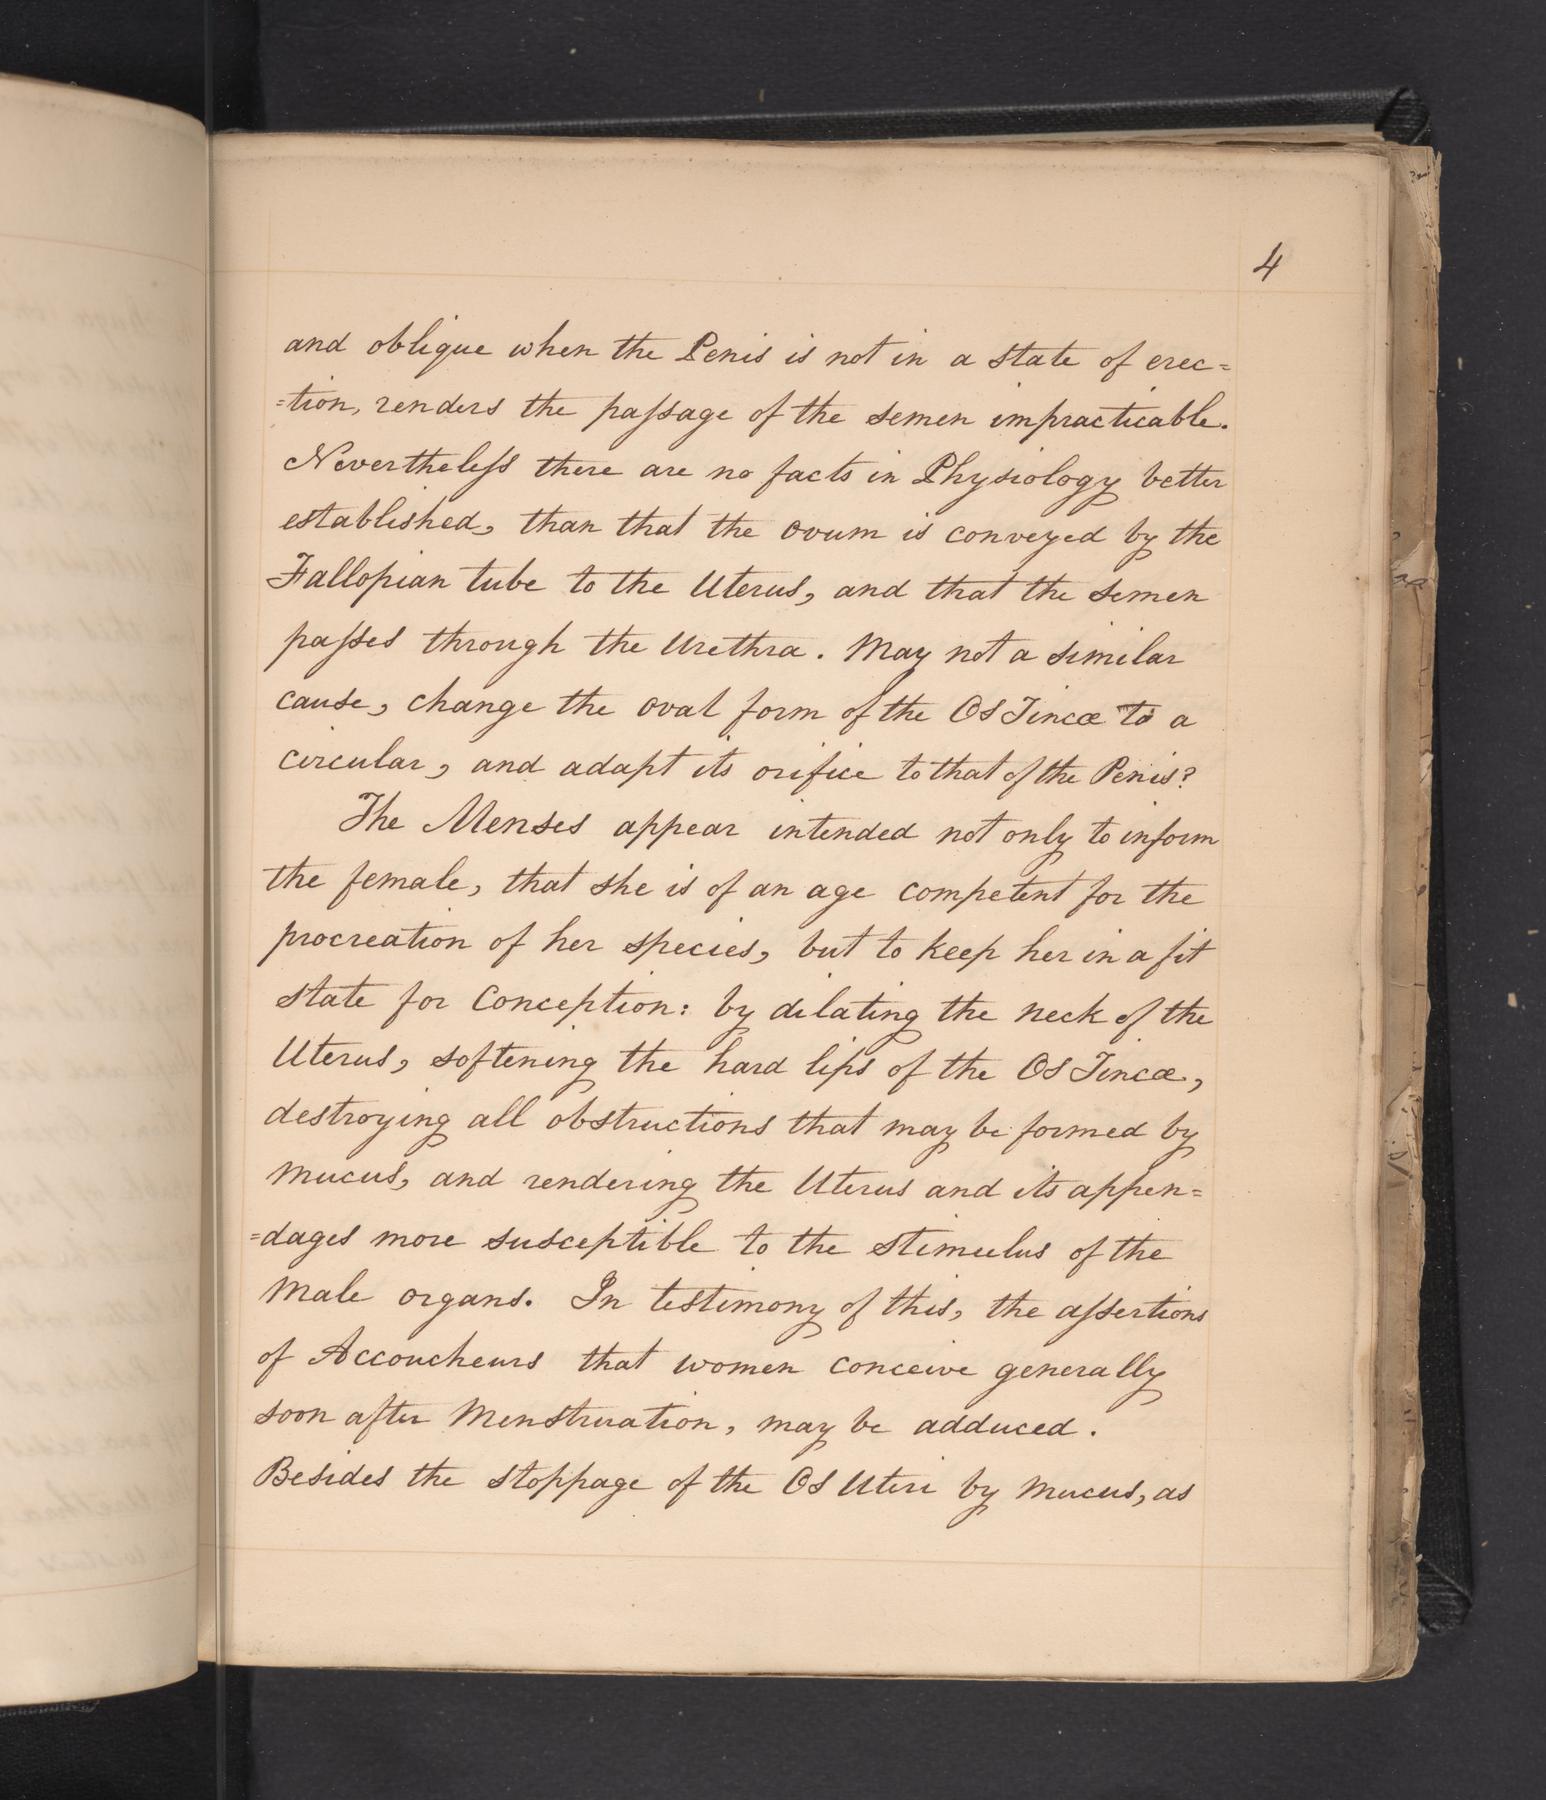 4
and oblique when the Penis is not in a state of erec=
=tion, renders the paſsage of the semen impracticable.
Nevertheleſs there are no facts in Physiology better
established, than that the ovum is conveyed by the
Fallopian tube to the Uterus, and that the semen
paſses through the Urethra. May not a similar
cause, change the oval form of the Os Tincæ to a
circular, and adapt its orifice to that of the Penis?
The Menses appear intended not only to inform
the female, that she is of an age competent for the
procreation of her species, but to keep her in a fit
state for Conception: by dilating the neck of the
Uterus, softening the hard lips of the Os Tincæ,
destroying all obstructions that may be formed by
mucus, and rendering the Uterus and its appen=
=dages more susceptible to the stimulus of the
Male organs. In testimony of this, the aſsertions
of Accoucheurs that women conceive generally
soon after Menstruation, may be adduced.
Besides the stoppage of the Os Uteri by Mucus, as